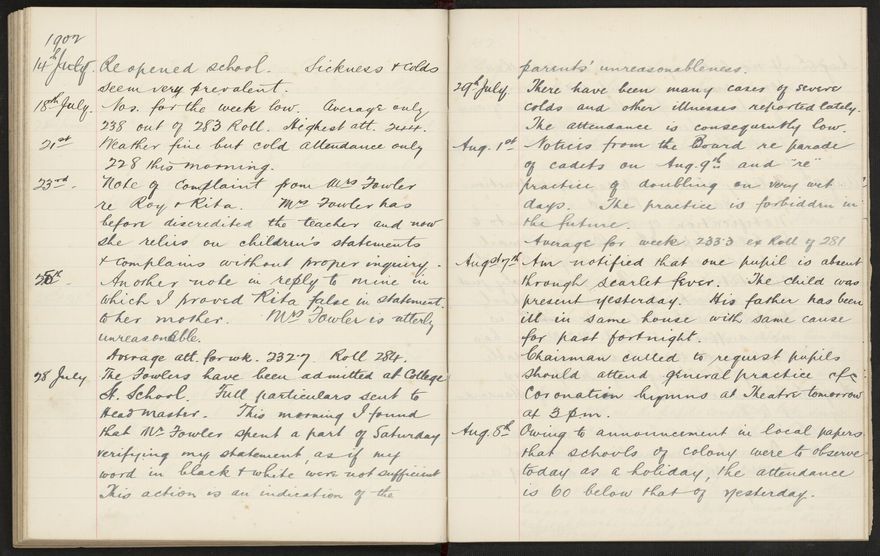 1902
14th July. Reopened school. Sickness & colds
seem very prevalent.
18th July. Nos. for the week low. Average only
238 out of 283 Roll. Highest att. 244.
21st Weather fine but cold attendance only
228 this morning.
23rd. Note of Complaint from Mrs Fowler
re Roy & Rita. Mrs Fowler has
before discredited the teacher and now
she relies on children's statements
& complains without proper inquiry.
25th. Another note in reply to mine in
which I proved Rita false in statement
to her mother. Mrs Fowler is utterly
unreasonable.
Average att. for wk. 232.7 Roll 284.
28 July The Fowlers have been admitted at College
St. School. Full particulars sent to
Head Master. This morning I found
that Mr Fowler spent a part of Saturday
verifying my statement, as if my
word in black & white were not sufficient
This action is an indication of the
parents' unreasonableness.
29th July There have been many cases of severe
colds and other illnesses reported lately.
The attendance is consequently low.
Aug. 1st Notices from the Board re parade
of cadets on Aug. 9th and "re"
practice of doubling on very wet
days. The practice is forbidden in
the future.
Average for week 233.3 ex Roll of 281
Augst 7th Am notified that one pupil is absent
through scarlet fever. The child was
present yesterday. His father has been
ill in same house with same cause
for past fortnight.
Chairman called to request pupils
should attend general practice of
Coronation hymns at Theatre tomorrow
at 3 p.m.
Aug. 8th Owing to announcement in local papers
that schools of colony were to observe
today as a holiday, the attendance
is 60 below that of yesterday.